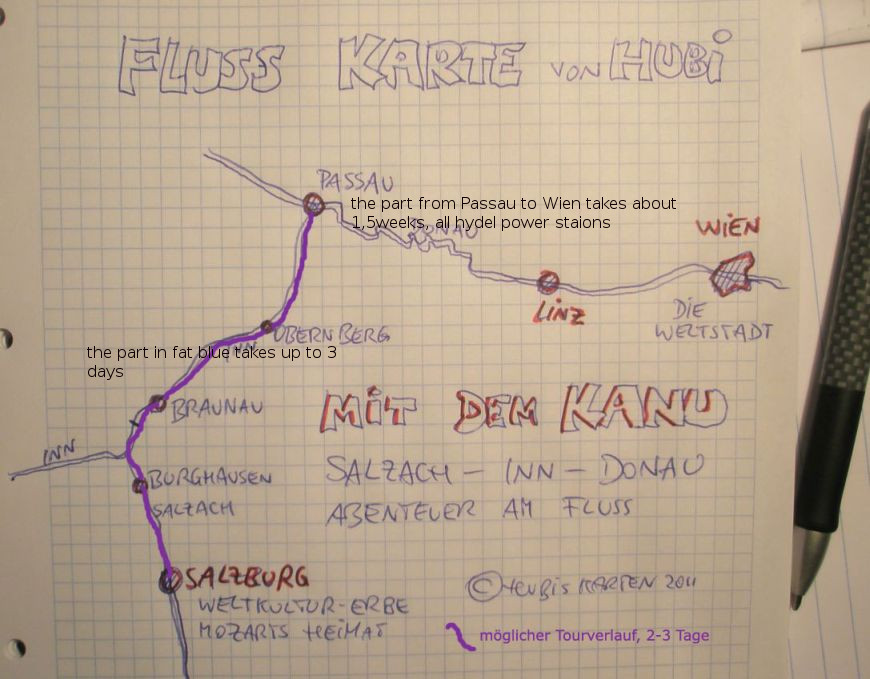 FLUSS KARTE VON HUBi
PASSAU
the part from Passau to Wien takes about
1,5weeks, all hydel power staions
DONAU
WiEN
LiNZ
DiE
WELTSTADT
OBERNBERG
INN
the part in fat blue takes up to 3
days
BRAUNAU
MiT DEM KANU
INN
BURGHAUSEN
SALZACH
SALZACH – INN – DONAU
ABENTEUER AM FLUSS
SALZBURG
WELTKULTUR-ERBE
MOZARTS HEIMAT
© HUBiS KARTEN 2011
möglicher Tourverlauf, 2-3 Tage